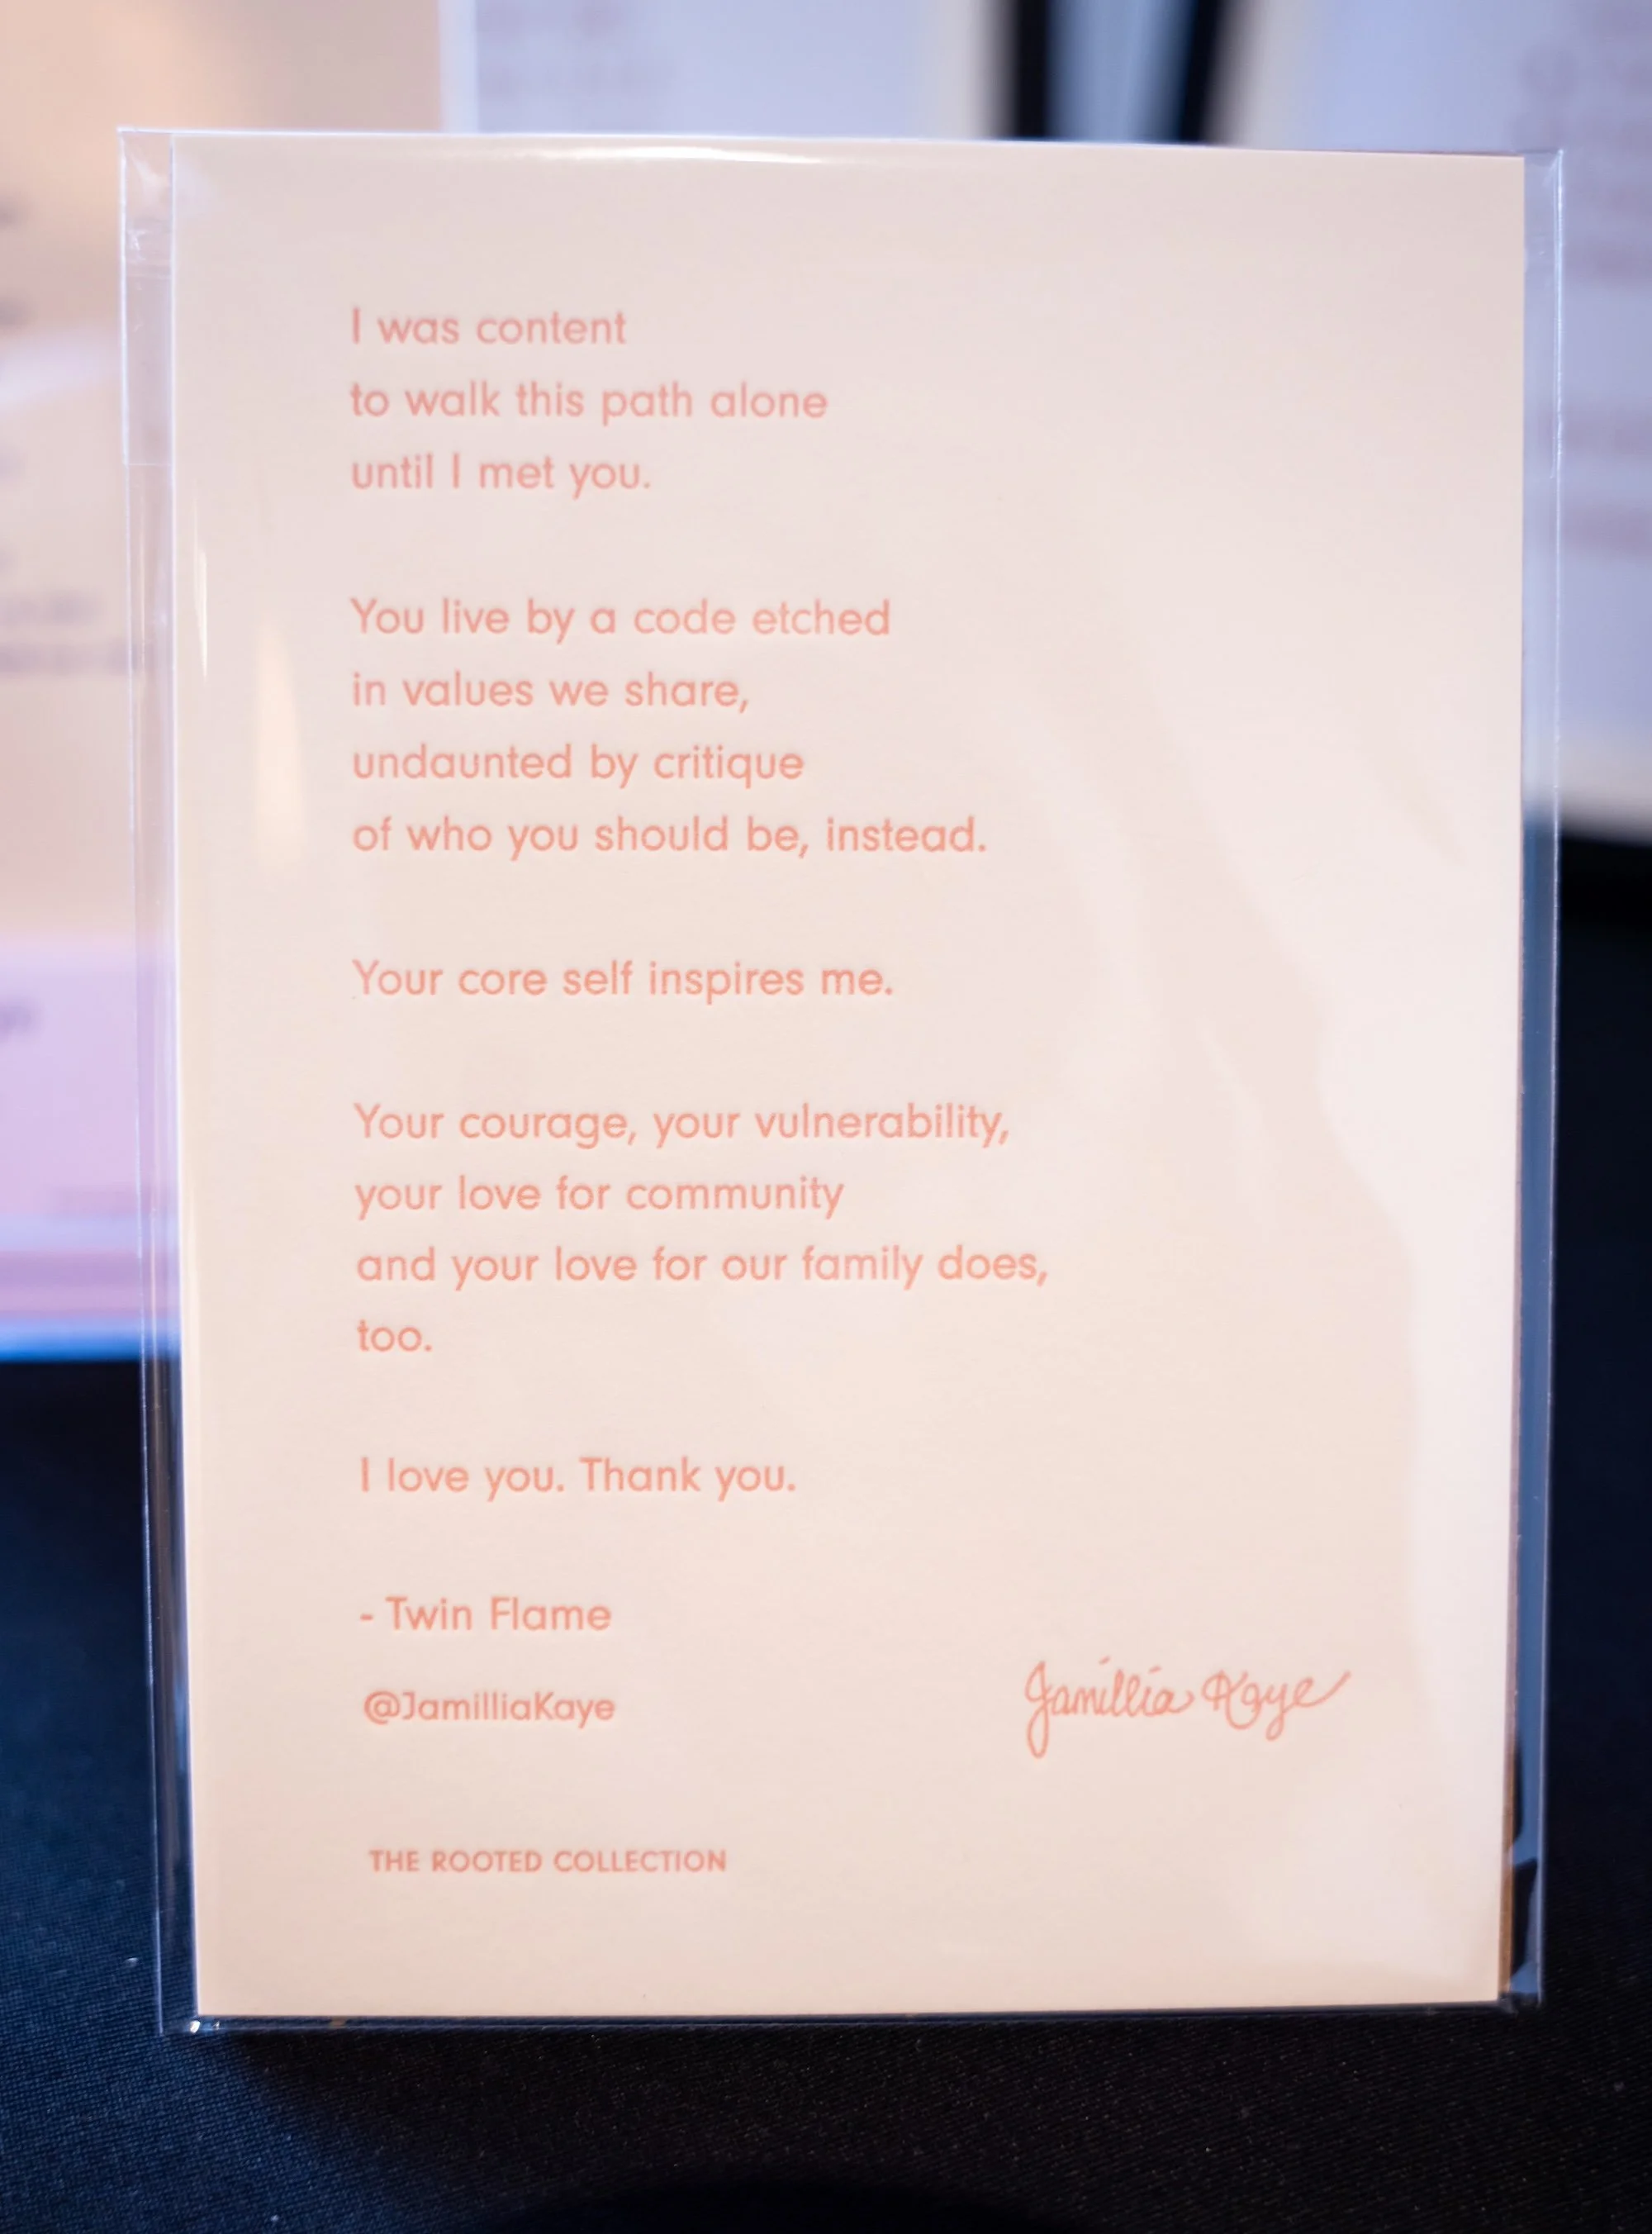 I was content
to walk this path alone
until I met you.
You live by a code etched
in values we share,
undaunted by critique
of who you should be, instead.
Your core self inspires me.
Your courage, your vulnerability,
your love for community
and your love for our family does,
too.
I love you. Thank you.
- Twin Flame
@JamilliaKaye
Jamillia Kaye
THE ROOTED COLLECTION